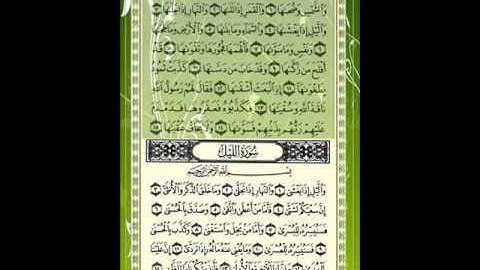 وَٱلشَّمْسِ وَضُحَىٰهَا ١ وَٱلْقَمَرِ إِذَا تَلَىٰهَا ٢ وَٱلنَّهَارِ إِذَا جَلَّىٰهَا ٣
وَٱلَّيْلِ إِذَا يَغْشَىٰهَا ٤ وَٱلسَّمَآءِ وَمَا بَنَىٰهَا ٥ وَٱلْأَرْضِ وَمَا طَحَىٰهَا
٦ وَنَفْسٍ وَمَا سَوَّىٰهَا ٧ فَأَلْهَمَهَا فُجُورَهَا وَتَقْوَىٰهَا ٨ قَدْ
أَفْلَحَ مَن زَكَّىٰهَا ٩ وَقَدْ خَابَ مَن دَسَّىٰهَا ١٠ كَذَّبَتْ ثَمُودُ
بِطَغْوَىٰهَآ ١١ إِذِ ٱنۢبَعَثَ أَشْقَىٰهَا ١٢ فَقَالَ لَهُمْ رَسُولُ ٱللَّهِ
نَاقَةَ ٱللَّهِ وَسُقْيَٰهَا ١٣ فَكَذَّبُوهُ فَعَقَرُوهَا فَدَمْدَمَ
عَلَيْهِمْ رَبُّهُم بِذَنۢبِهِمْ فَسَوَّىٰهَا ١٤ وَلَا يَخَافُ عُقْبَٰهَا ١٥
سُورَةُ اللَّيْلِ
بِسْمِ ٱللَّهِ ٱلرَّحْمَٰنِ ٱلرَّحِيمِ
وَٱلَّيْلِ إِذَا يَغْشَىٰ ١ وَٱلنَّهَارِ إِذَا تَجَلَّىٰ ٢ وَمَا خَلَقَ ٱلذَّكَرَ وَٱلْأُنثَىٰٓ ٣
إِنَّ سَعْيَكُمْ لَشَتَّىٰ ٤ فَأَمَّا مَنْ أَعْطَىٰ وَٱتَّقَىٰ ٥ وَصَدَّقَ بِٱلْحُسْنَىٰ
٦ فَسَنُيَسِّرُهُۥ لِلْيُسْرَىٰ ٧ وَأَمَّا مَنۢ بَخِلَ وَٱسْتَغْنَىٰ ٨ وَكَذَّبَ بِٱلْحُسْنَىٰ
٩ فَسَنُيَسِّرُهُۥ لِلْعُسْرَىٰ ١٠ وَمَا يُغْنِى عَنْهُ مَالُهُۥٓ إِذَا تَرَدَّىٰٓ ١١ إِنَّ عَلَيْنَا